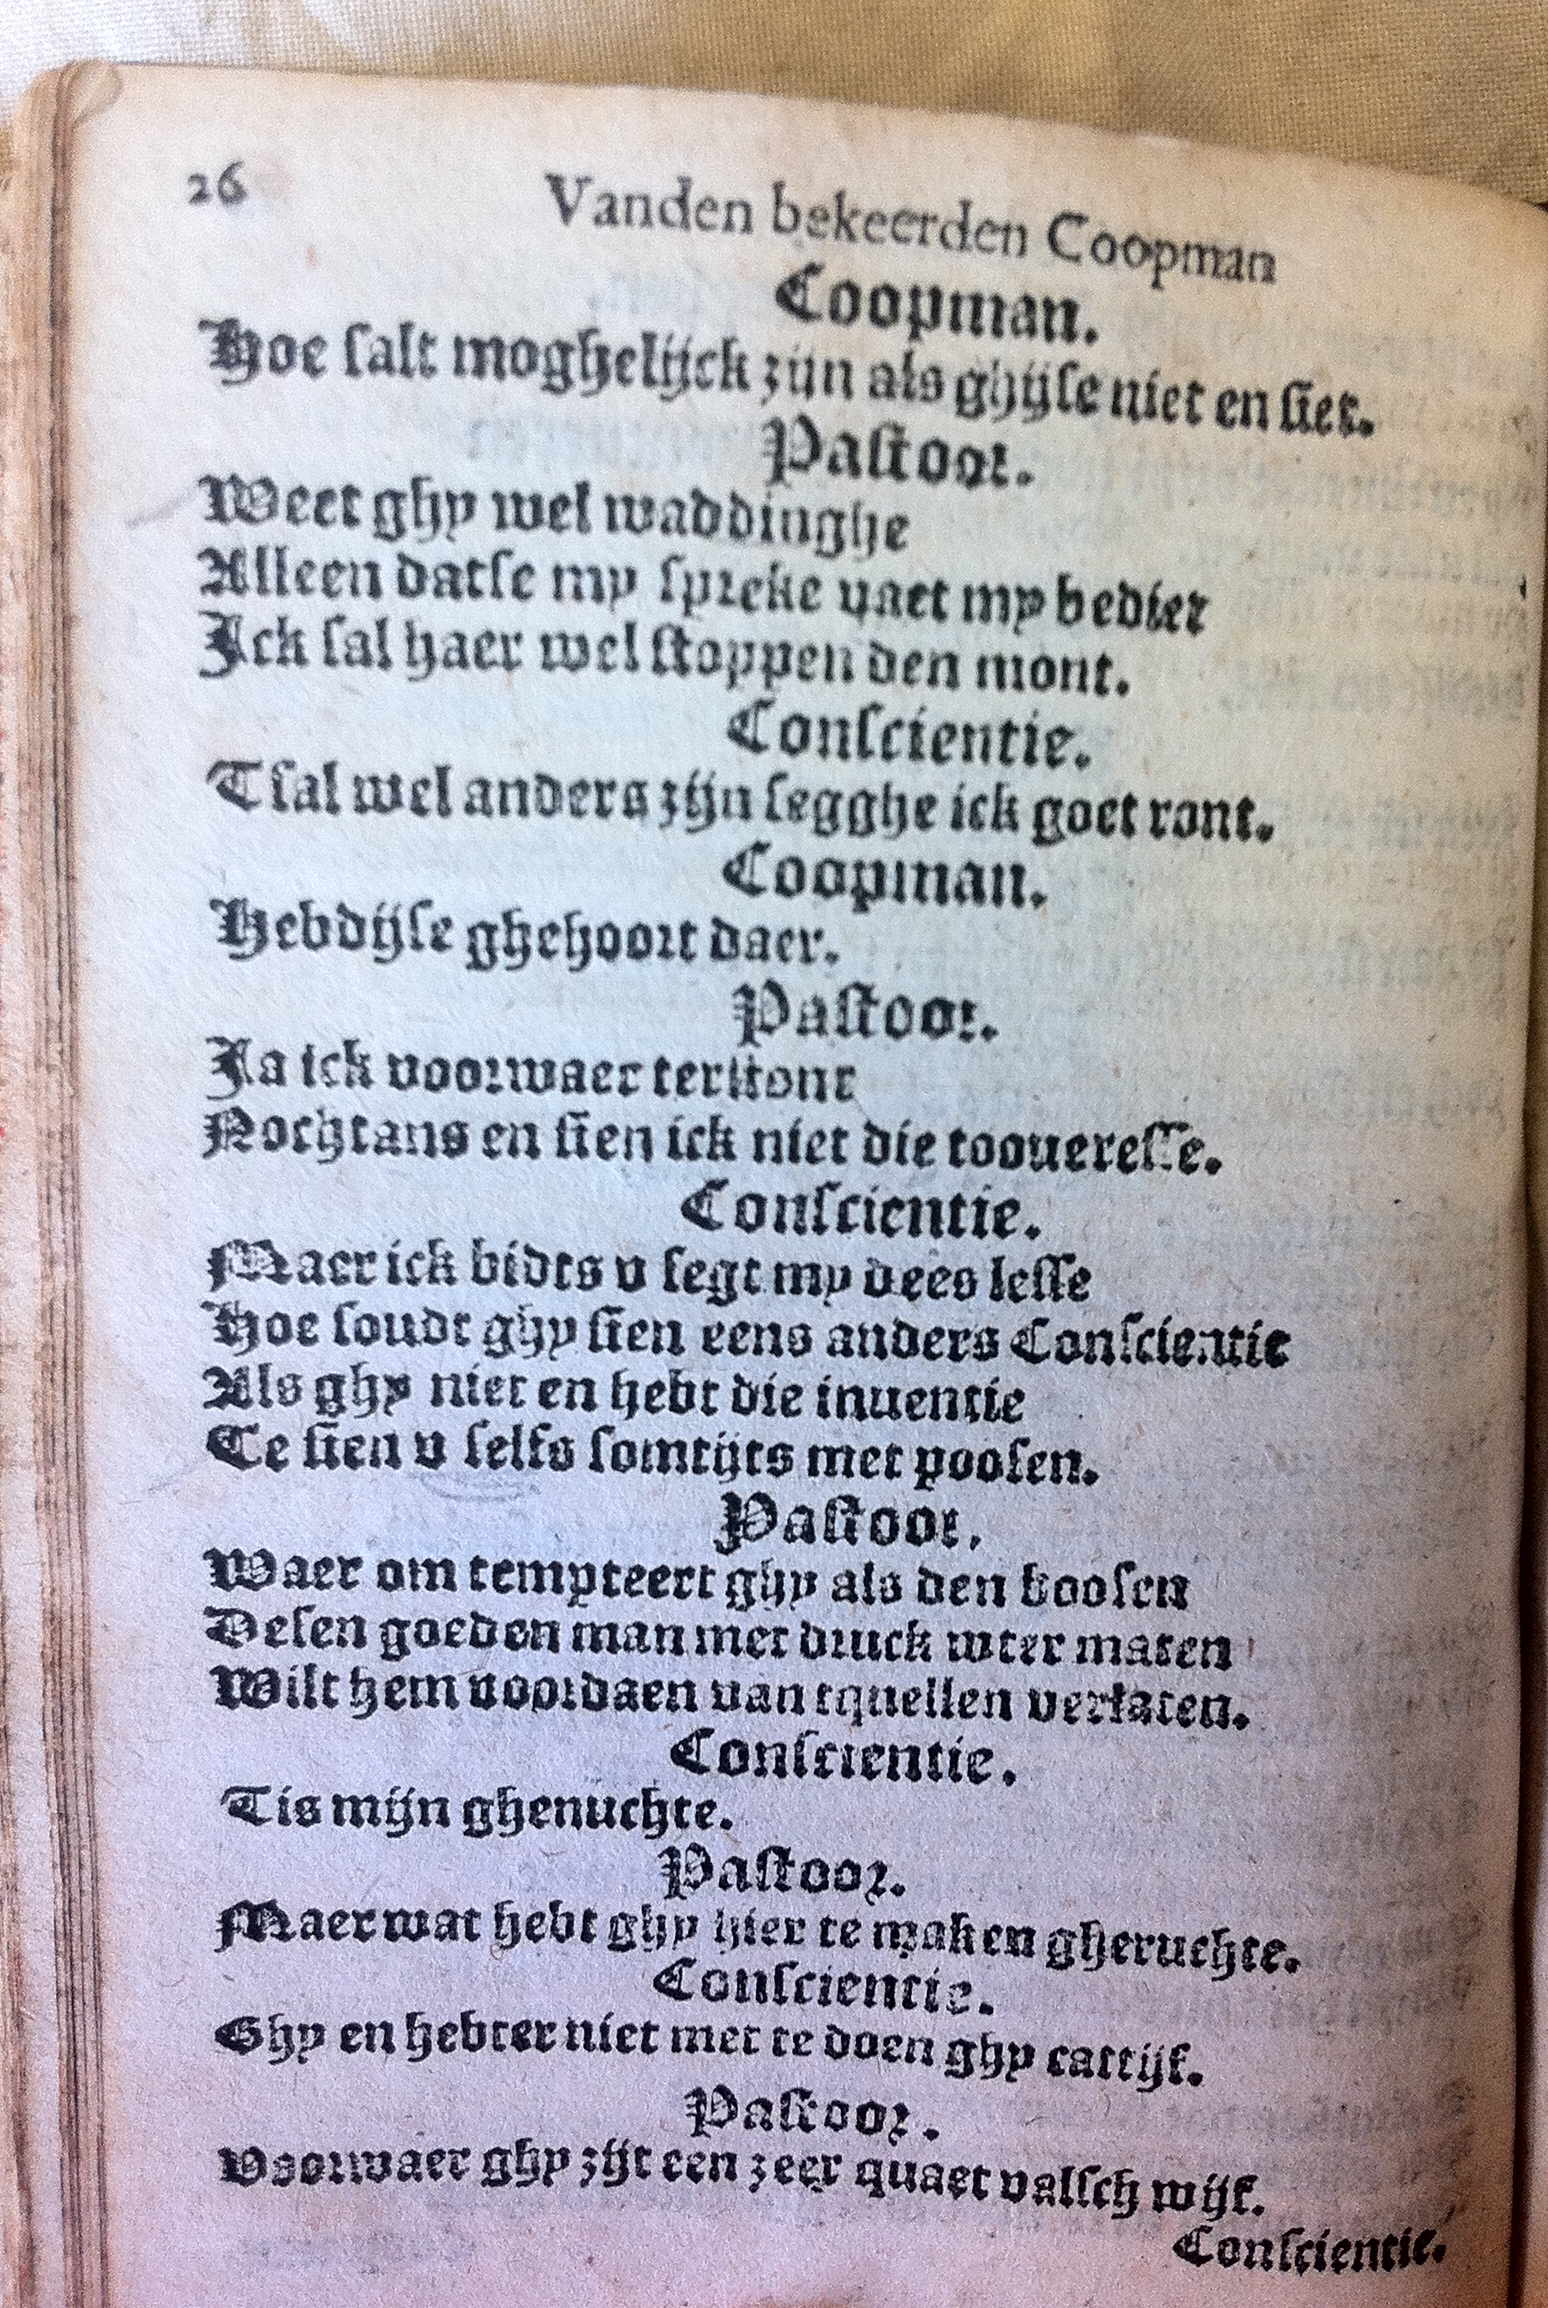 26
Vanden bekeerden Coopman
Coopman.
Hoe salt moghelijck zijn als ghijse niet en siet.
Pastoor.
Weet ghy wel waddinghe
Alleen datse my spreke naet mp bediet
Ick sal haer wel stoppen den mont.
Conscientie.
Tsal wel anders zijn segghe ick goet ront.
Coopman.
Hebdijse ghehoort daer.
Pastoor.
Ja ick voorwaer terstont
Nochtans en sien ick niet die tooueresse.
Conscientie.
Maer ick bidts v segt my dees lesse
Hoe soudt ghy sien eens anders Conscientie
Als ghy niet en hebt die inuentie
Te sien v selfs somtijts met poosen.
Pastoor.
Waer om tempteert ghy als den boosen
Desen goeden man met druck wter maten
Wilt hem voordaen van tquellen verlaten.
Conscientie.
Tis mijn ghenuchte.
Pastoor.
Maer wat hebt ghy hier te maken gheruchte.
Conscientie.
Ghy en hebter niet met te doen ghy cattijf.
Pastoor.
Voorwaer ghy zijt een zeer quaet valsch wijf.
Conscientie.